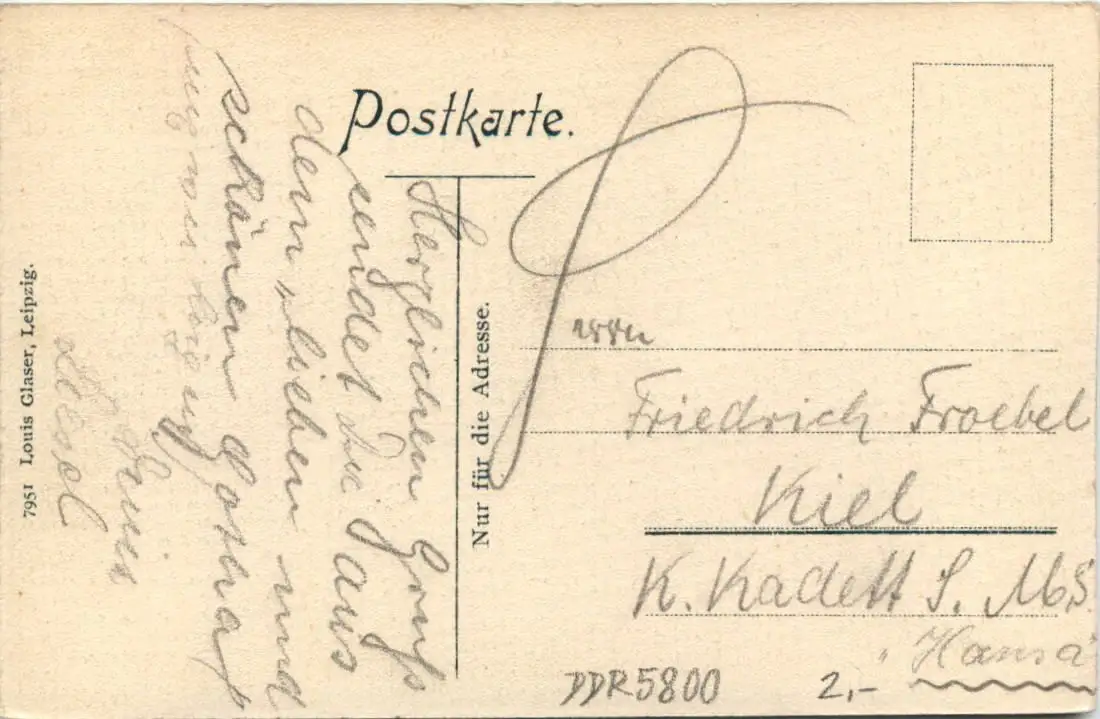 Postkarte.
Herzlichen Gruß
sendet Dir aus
dem „lieben und
schönen Gotha
Deine
Liesel
Nur für die Adresse.
7951 Louis Glaser, Leipzig.
Herrn
Friedrich Froebel
Kiel
K. Kadett S. M. S.
„Hansa"
DDR5800 2,-